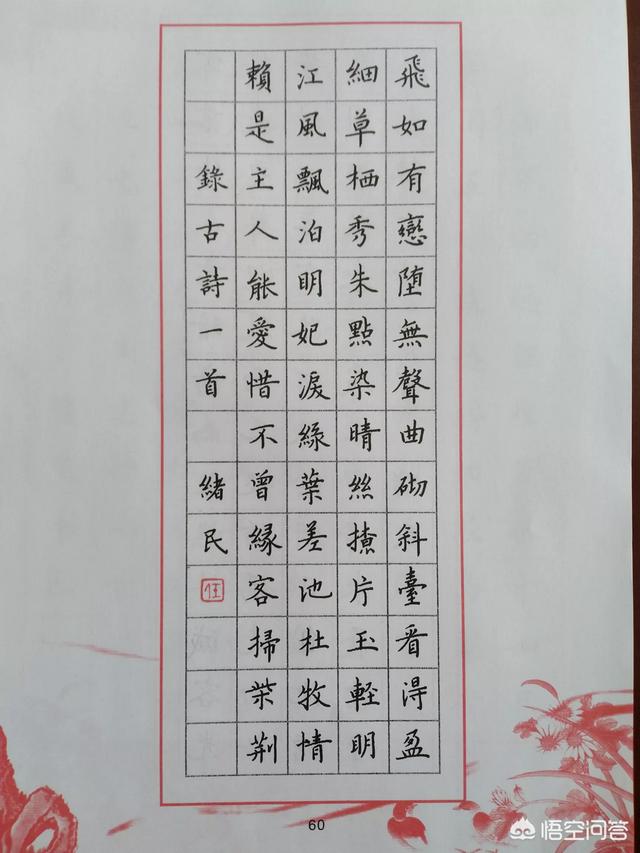 飛如有戀堕無聲曲砌斜臺看得盈
細草栖秀朱點染晴絲撩片玉輕明
江風飄泊明妃淚綠葉差池杜牧情
賴是主人能愛惜不曾緣客掃柴荆
錄古詩一首 緒民
60
悟空问答